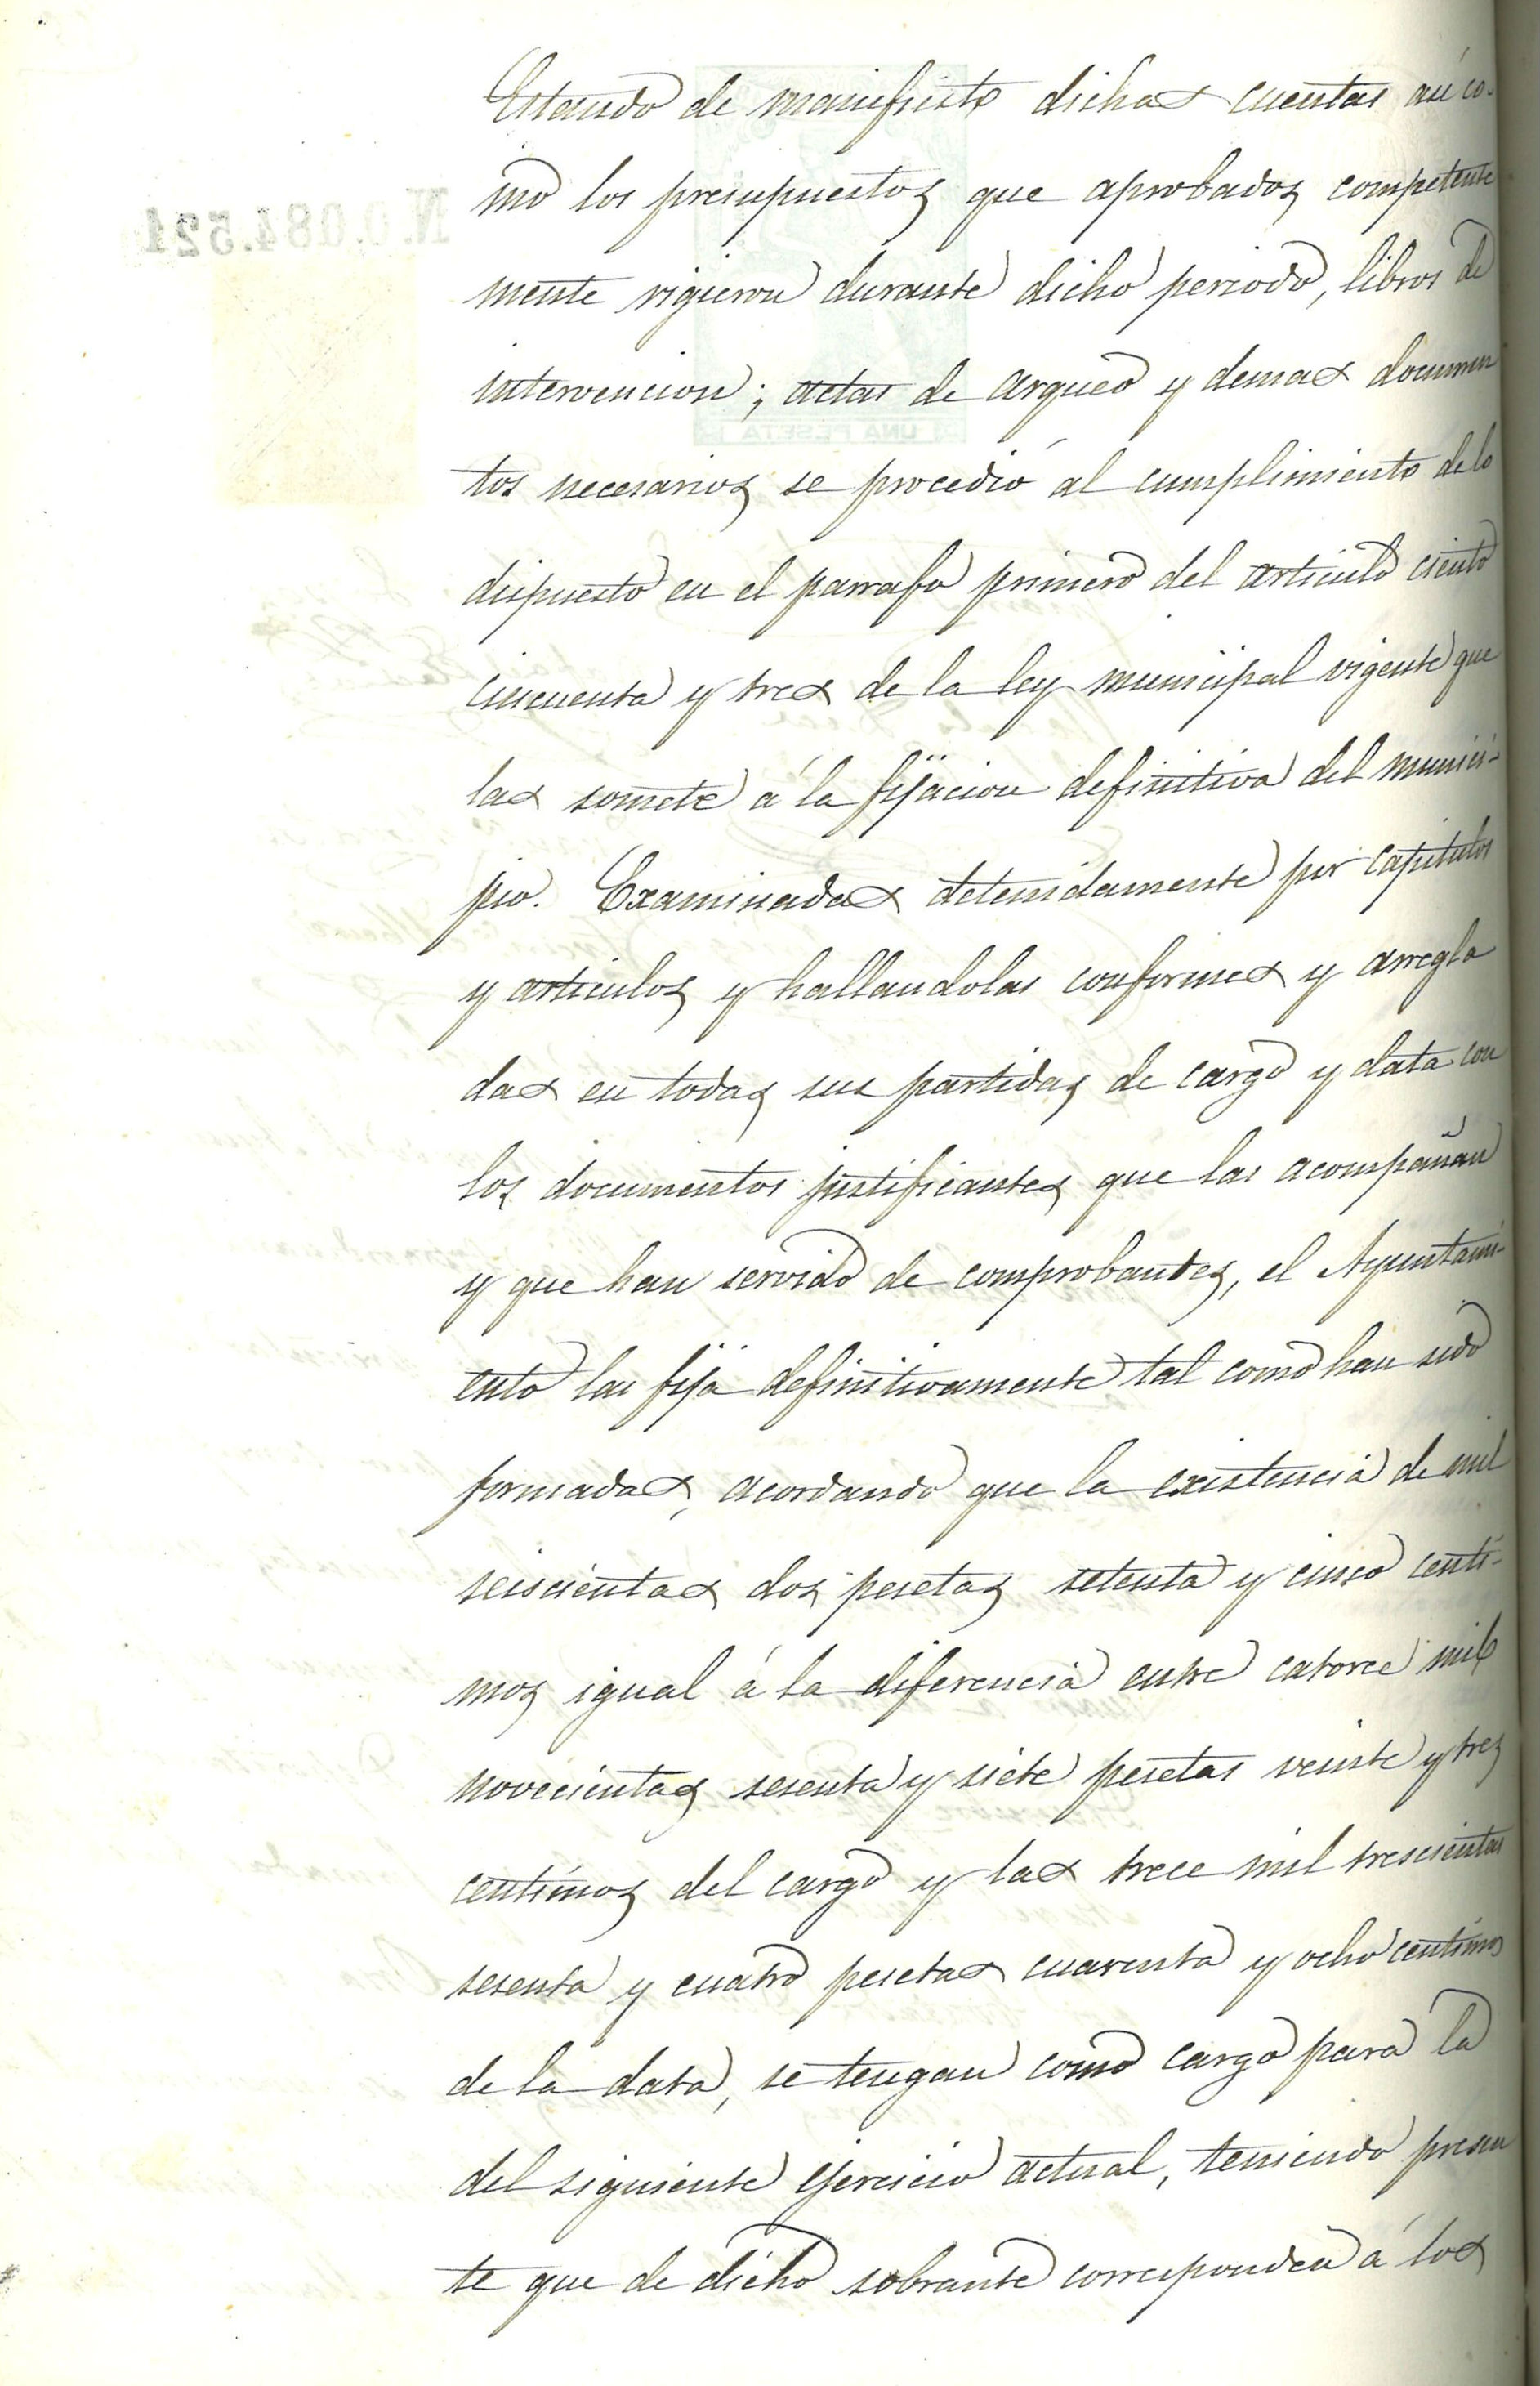 Estando de manifiesto dichas cuentas así co-
mo los presupuestos que aprobados competente
mente rigieron durante dicho periodo, libros de
intervencion; actas de arqueo y demas documen
tos necesarios se procedió al cumplimiento de lo
dispuesto en el parrafo primero del articulo ciento
cincuenta y tres de la ley municipal vigente que
las somete á la fijacion definitiva del munici-
pio. Examinadas detenidamente por capitulos
y articulos y hallandolas conformes y arregla
das en todas sus partidas de cargo y data con
los documentos justificantes que las acompañan
y que han servido de comprobantes, el Ayuntami-
ento las fija definitivamente tal como han sido
formadas, acordando que la existencia de mil
seiscientas dos pesetas setenta y cinco centi-
mos igual á la diferencia entre catorce mil
novecientas sesenta y siete pesetas veinte y tres
centimos del cargo y las trece mil trescientas
sesenta y cuatro pesetas cuarenta y ocho centimos
de la data, se tengan como cargo para la
del siguiente ejercicio actual, teniendo presen
te que de dicho sobrante corresponden á los
N.0.084.521
UNA PESETA